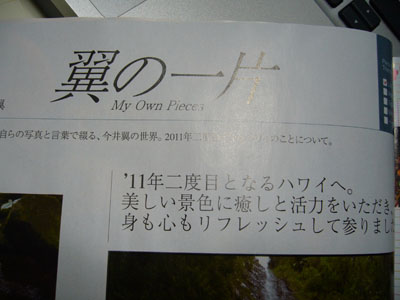 翼の一片
My Own Pieces
翼
自らの写真と言葉で綴る、今井翼の世界。2011年二度目 のことについて。
'11年二度目となるハワイへ。
美しい景色に癒しと活力をいただき、
身も心もリフレッシュして参りまし